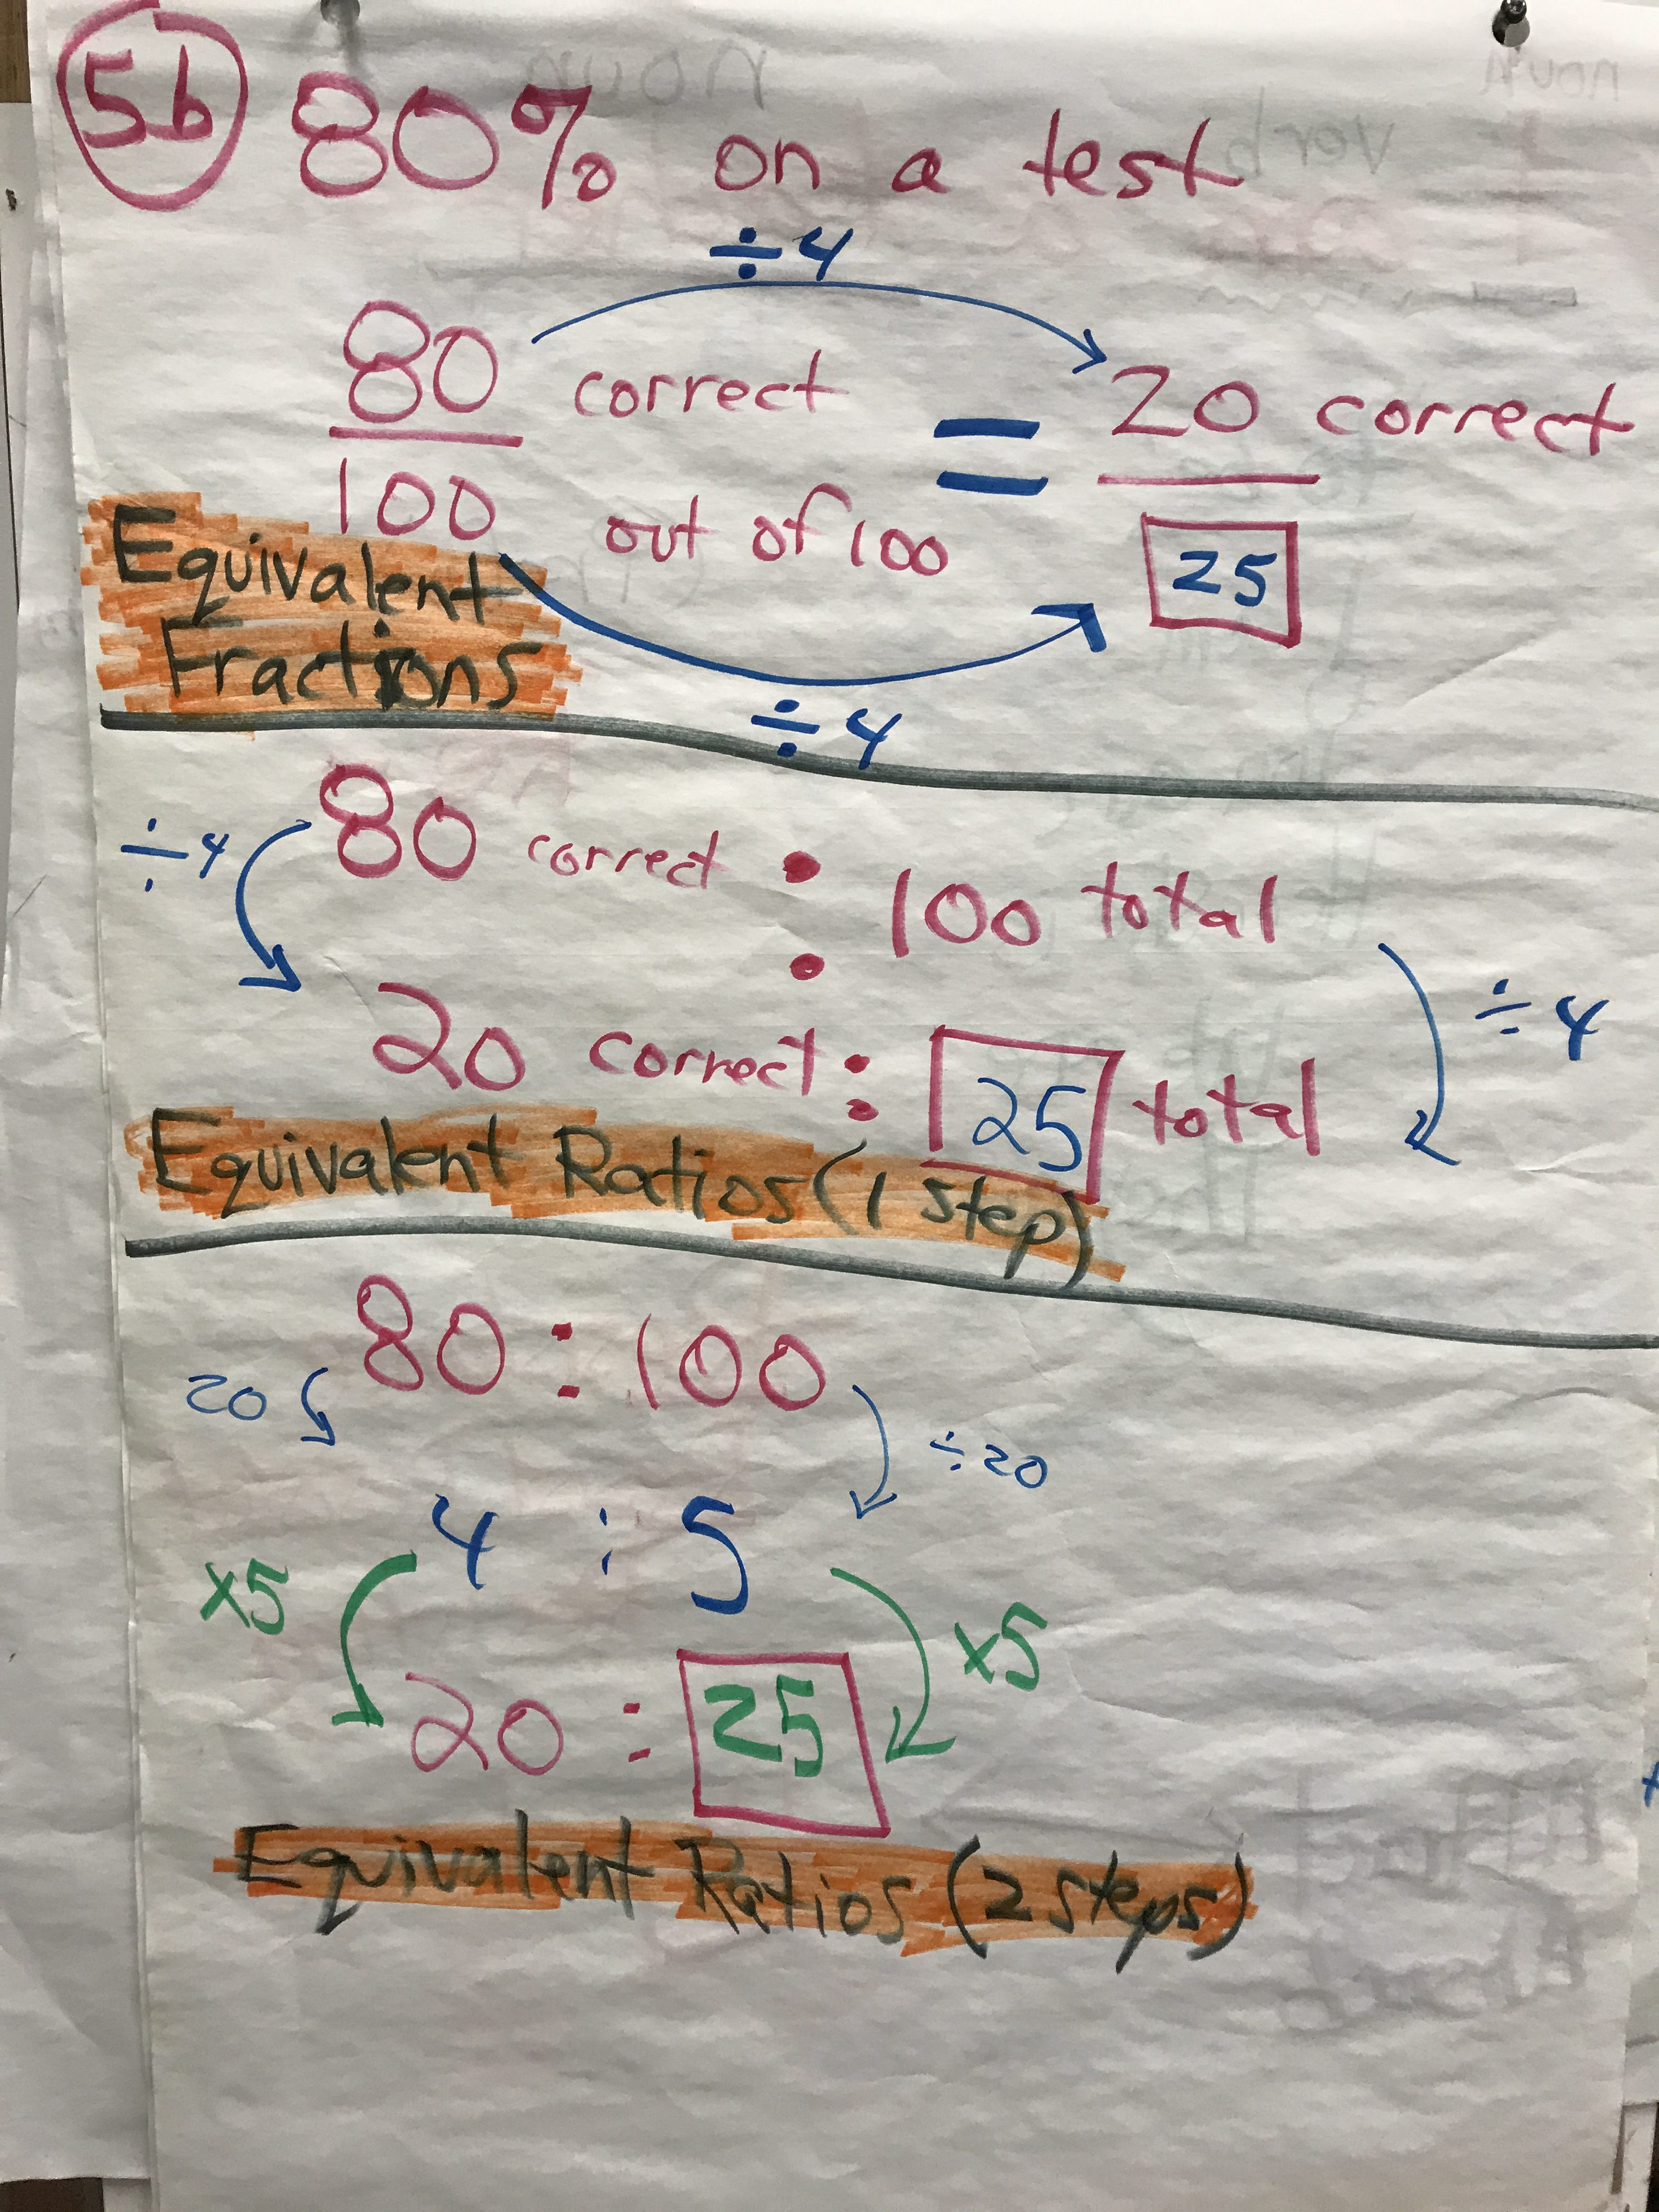 5b 80% on a test
÷4
80 correct = 20 correct
100 out of 100 25
Equivalent
Fractions
÷4
÷4 80 correct : 100 total
÷4
20 correct : 25 total
Equivalent Ratios (1 step)
80 : 100
20 ÷20
4 : 5
x5 x5
20 : 25
Equivalent Ratios (2 steps)